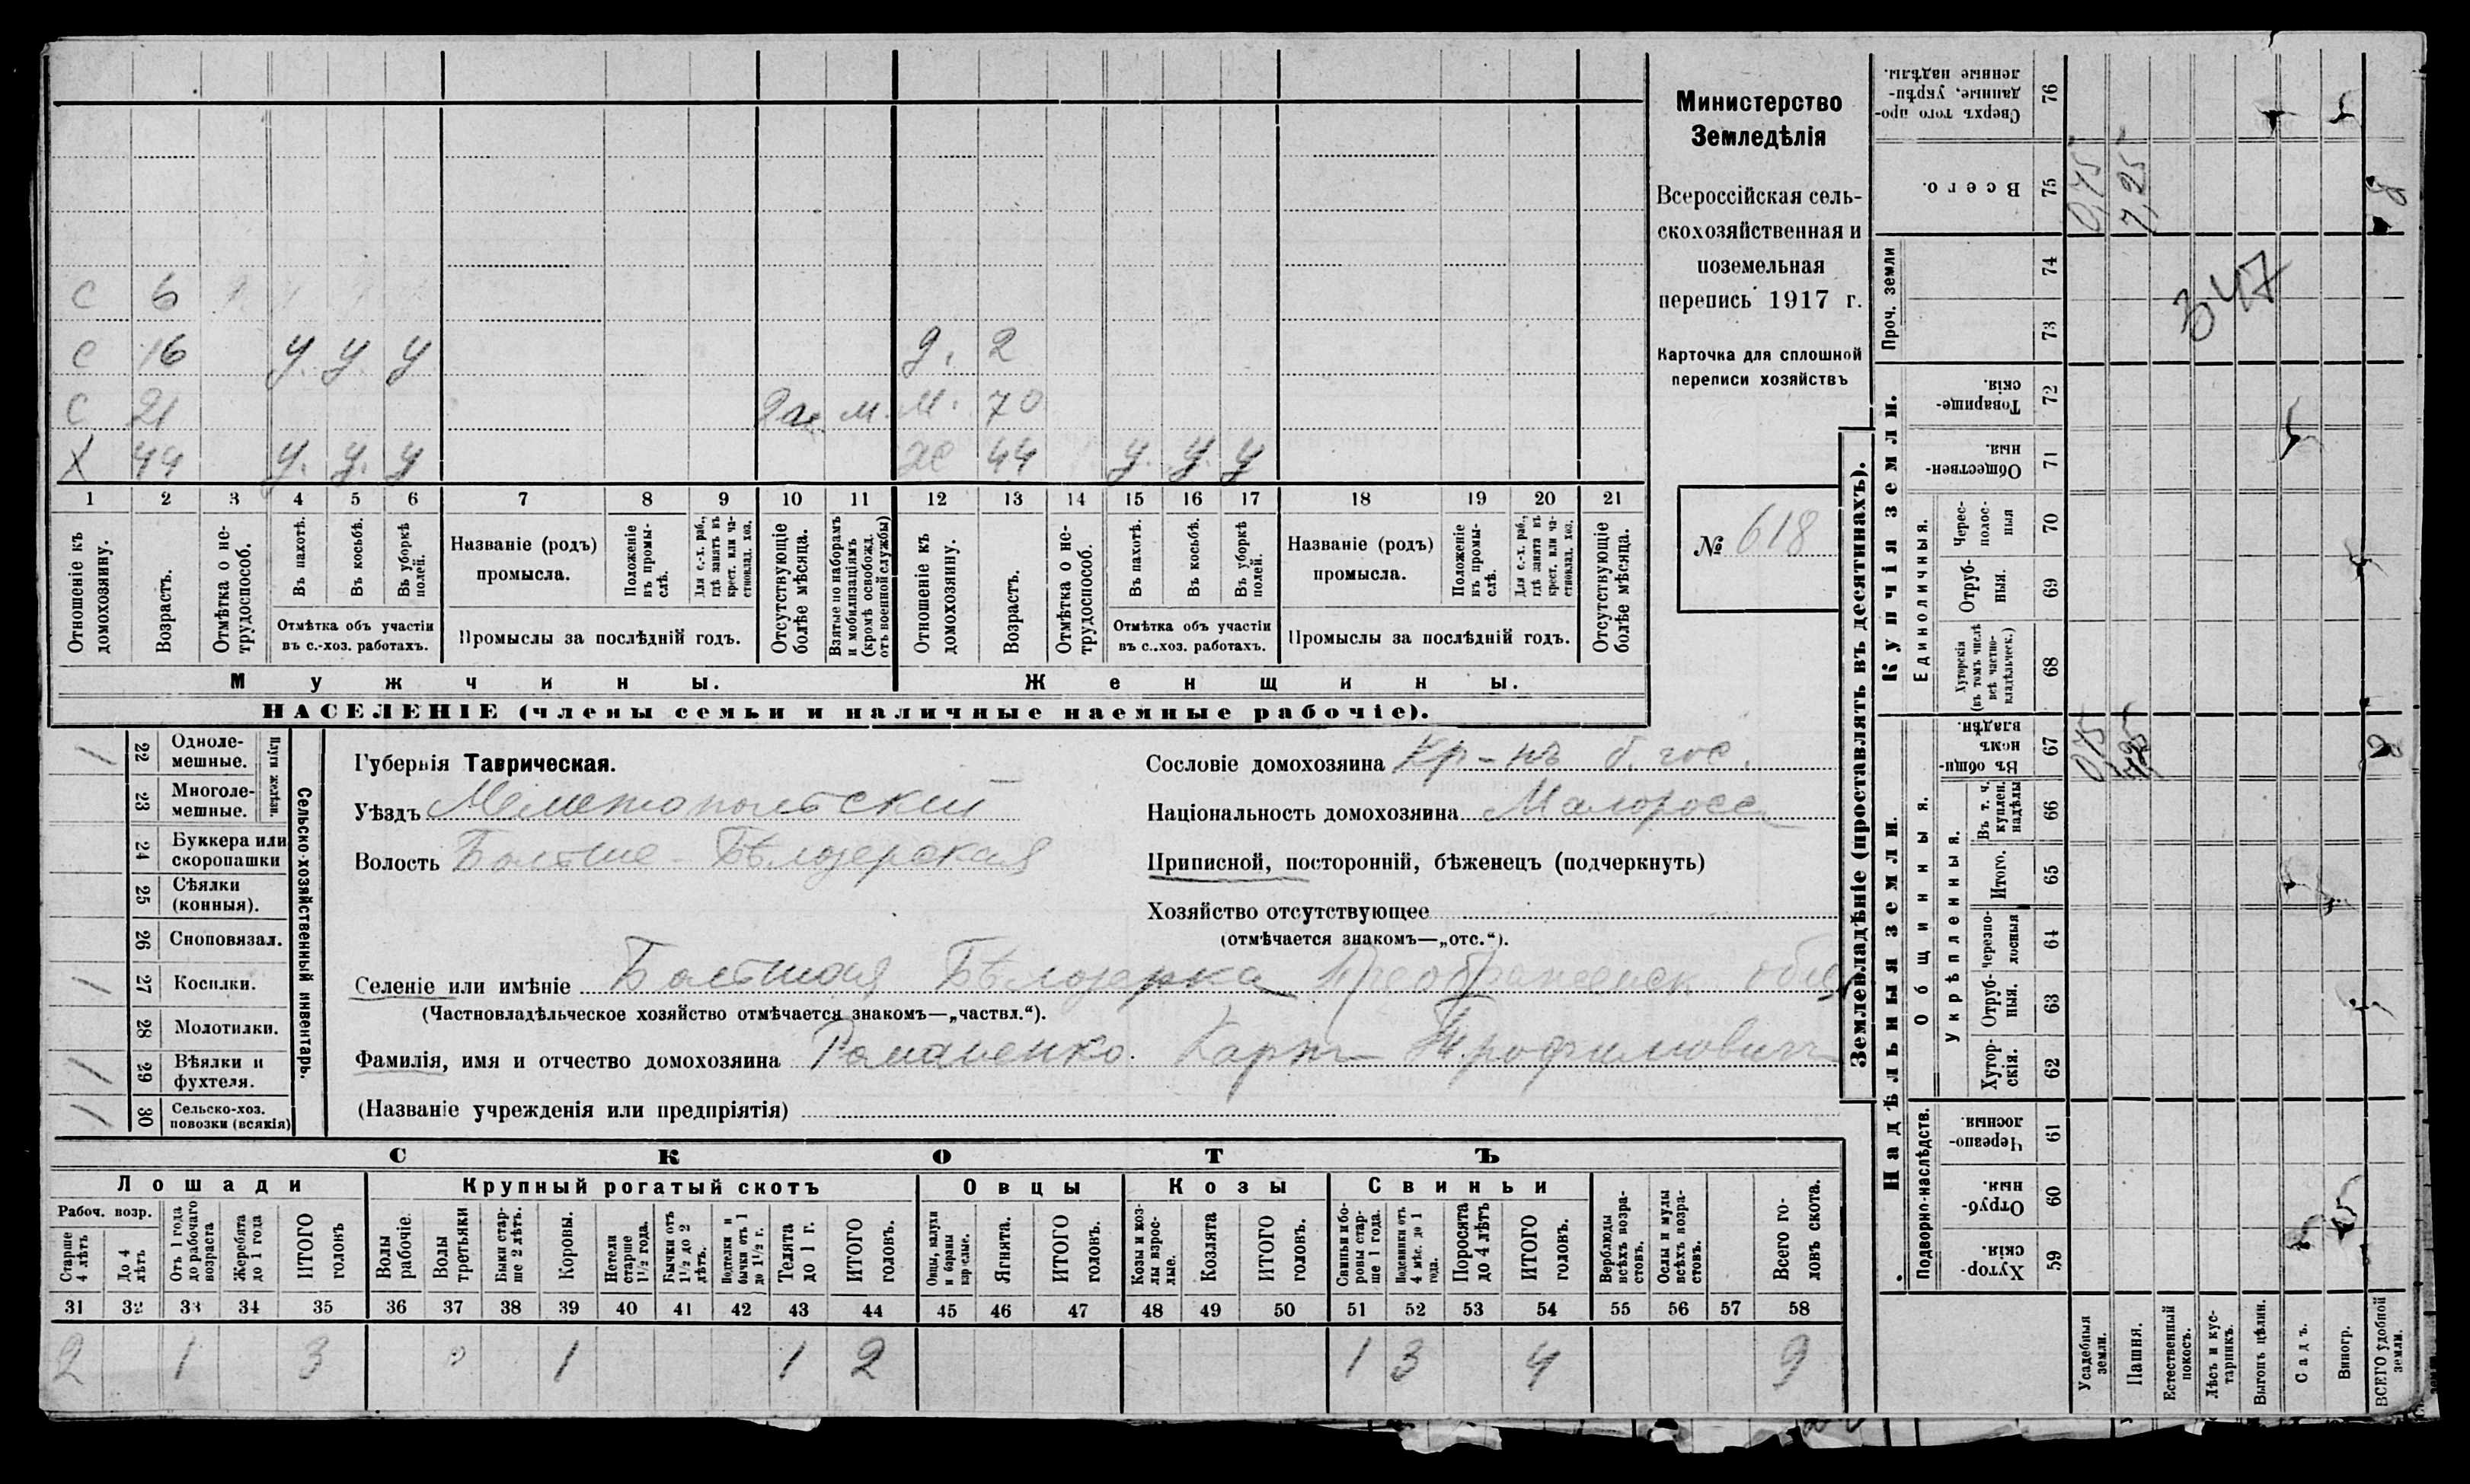 С 6
С 16 у. у. у д. 2
С 21 м. М. 70
Х 44 у. у. у Ж 44 у. у. у
1 2 3 4 5 6 7 8 9 10 11 12 13 14 15 16 17 18 19 20 21
Отношеніе къ домохозяину.
Возрастъ.
Отмѣтка о не-трудоспособ.
Въ пахотѣ.
Въ косьбѣ.
Въ уборкѣ полей.
Отмѣтка объ участіи
въ с.-хоз. работахъ.
Названіе (родъ)
промысла.
Положеніе въ промы-слѣ.
Для с.-х. раб., гдѣ занятъ въ крест. или ча-стновлад. хоз.
Промыслы за послѣдній годъ.
Отсутствующіе болѣе мѣсяца.
Взятые по наборамъ и мобилизаціямъ (кромѣ освобожд. отъ военной службы)
Отношеніе къ домохозяину.
Возрастъ.
Отмѣтка о не-трудоспособ.
Въ пахотѣ.
Въ косьбѣ.
Въ уборкѣ полей.
Отмѣтка объ участіи
въ с..хоз. работахъ.
Названіе (родъ)
промысла.
Положеніе въ промы-слѣ.
Для с.-х. раб., гдѣ занята въ крест. или ча-стновлад. хоз.
Промыслы за послѣдній годъ.
Отсутствующіе болѣе мѣсяца.
Мужчины. Женщины.
НАСЕЛЕНІЕ (члены семьи и наличные наемные рабочіе).
Министерство
Земледѣлія
Всероссійская сель-
скохозяйственная и
поземельная
перепись 1917 г.
Карточка для сплошной
переписи хозяйствъ
№ 618
/ 22 Одноле-мешные.
23 Многоле-мешные.
Плуги желѣзн.
24 Буккера или скоропашки
25 Сѣялки (конныя).
26 Сноповязал.
/ 27 Косилки.
28 Молотилки.
/ 29 Вѣялки и фухтеля.
/ 30 Сельско-хоз. повозки (всякія)
Сельско-хозяйственный инвентарь.
Губернія Таврическая.
Уѣздъ Мелитопольскій
Волость Больше-Бѣлозерская
Сословіе домохозяина Кр-нъ б. гос.
Національность домохозяина Малоросс
Приписной, посторонній, бѣженецъ (подчеркнуть)
Хозяйство отсутствующее
(отмѣчается знакомъ—„отс.“).
Селеніе или имѣніе Большая Бѣлозерка Преображенск общ
(Частновладѣльческое хозяйство отмѣчается знакомъ—„частвл.“).
Фамилія, имя и отчество домохозяина Романенко Карп Трофимович
(Названіе учрежденія или предпріятія)
СКОТЪ
Лошади Крупный рогатый скотъ Овцы Козы Свиньи
Рабоч. возр.
Старше 4 лѣтъ
До 4 лѣтъ
Отъ 1 года до рабочаго возраста
Жеребята до 1 года
ИТОГО головъ
Волы рабочіе.
Волы третьяки
Быки стар-ше 2 лѣтъ.
Коровы.
Нетели старше 1½ года.
Бычки отъ 1½ до 2 лѣтъ.
Подтелки и бычки отъ 1 до 1½ г.
Телята до 1 г.
ИТОГО головъ.
Овцы, валухи и бараны взрослые.
Ягнята.
ИТОГО головъ.
Козы и коз-лы взрос-лые.
Козлята
ИТОГО головъ.
Свиньи и бо-ровы стар-ше 1 года.
Подсвинки отъ 4 мѣс. до 1 года.
Поросята до 4 лѣтъ
ИТОГО головъ.
Верблюды всѣхъ возра-стовъ.
Ослы и мулы всѣхъ возра-стовъ.
Всего го-ловъ скота.
31 32 33 34 35 36 37 38 39 40 41 42 43 44 45 46 47 48 49 50 51 52 53 54 55 56 57 58
2 1 3 1 1 2 1 3 4 9
Землевладѣніе (проставлять въ десятинахъ).
Надѣльныя земли. Купчія земли. Проч. земли
Подворно-наслѣдств.
Общинныя.
Укрѣпленныя.
Единоличныя.
Сверхъ того про-данные, укрѣп-ленные надѣлы. 76
Всего. 75 0,75 7,25 8
74
73
347
Товарище-скія. 72
Обществен-ныя. 71
Черес-полос-ныя 70
Отруб-ныя. 69
Хуторскія (въ томъ числѣ всѣ частно-владѣльческ.) 68
Въ общи-номъ владѣн. 67 0,75 7,25 8
Въ т. ч. куплен. надѣлы 66
Итого. 65
Черезпо-лосныя 64
Отруб-ныя. 63
Хутор-скія. 62
Черезпо-лосныя 61
Отруб-ныя. 60
Хутор-скія. 59
Усадебныя земли.
Пашня.
Естественный покосъ.
Лѣсъ и кус-тарникъ.
Выгонъ цѣлин.
Садъ.
Виногр.
ВСЕГО удобной земли.